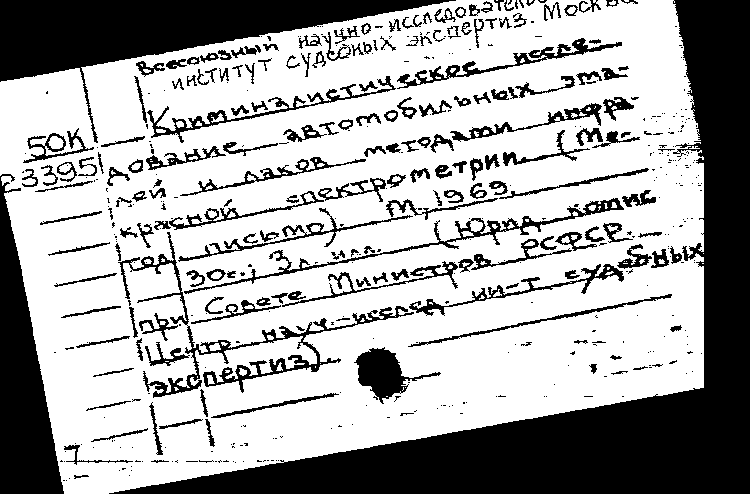 Всесоюзный научно-исследователь
институт судебных экспертиз. Москва
Криминалистическое иссле-
50К
дование автомобильных эма-
23395
лей и лаков методами инфра-
красной спектрометрии. (Ме-
тод. письмо). М., 1969.
30с.; 3л. илл. (Юрид. комис
при Совете Министров РСФСР.
Центр. науч.-исслед. ин-т судебных
экспертиз).